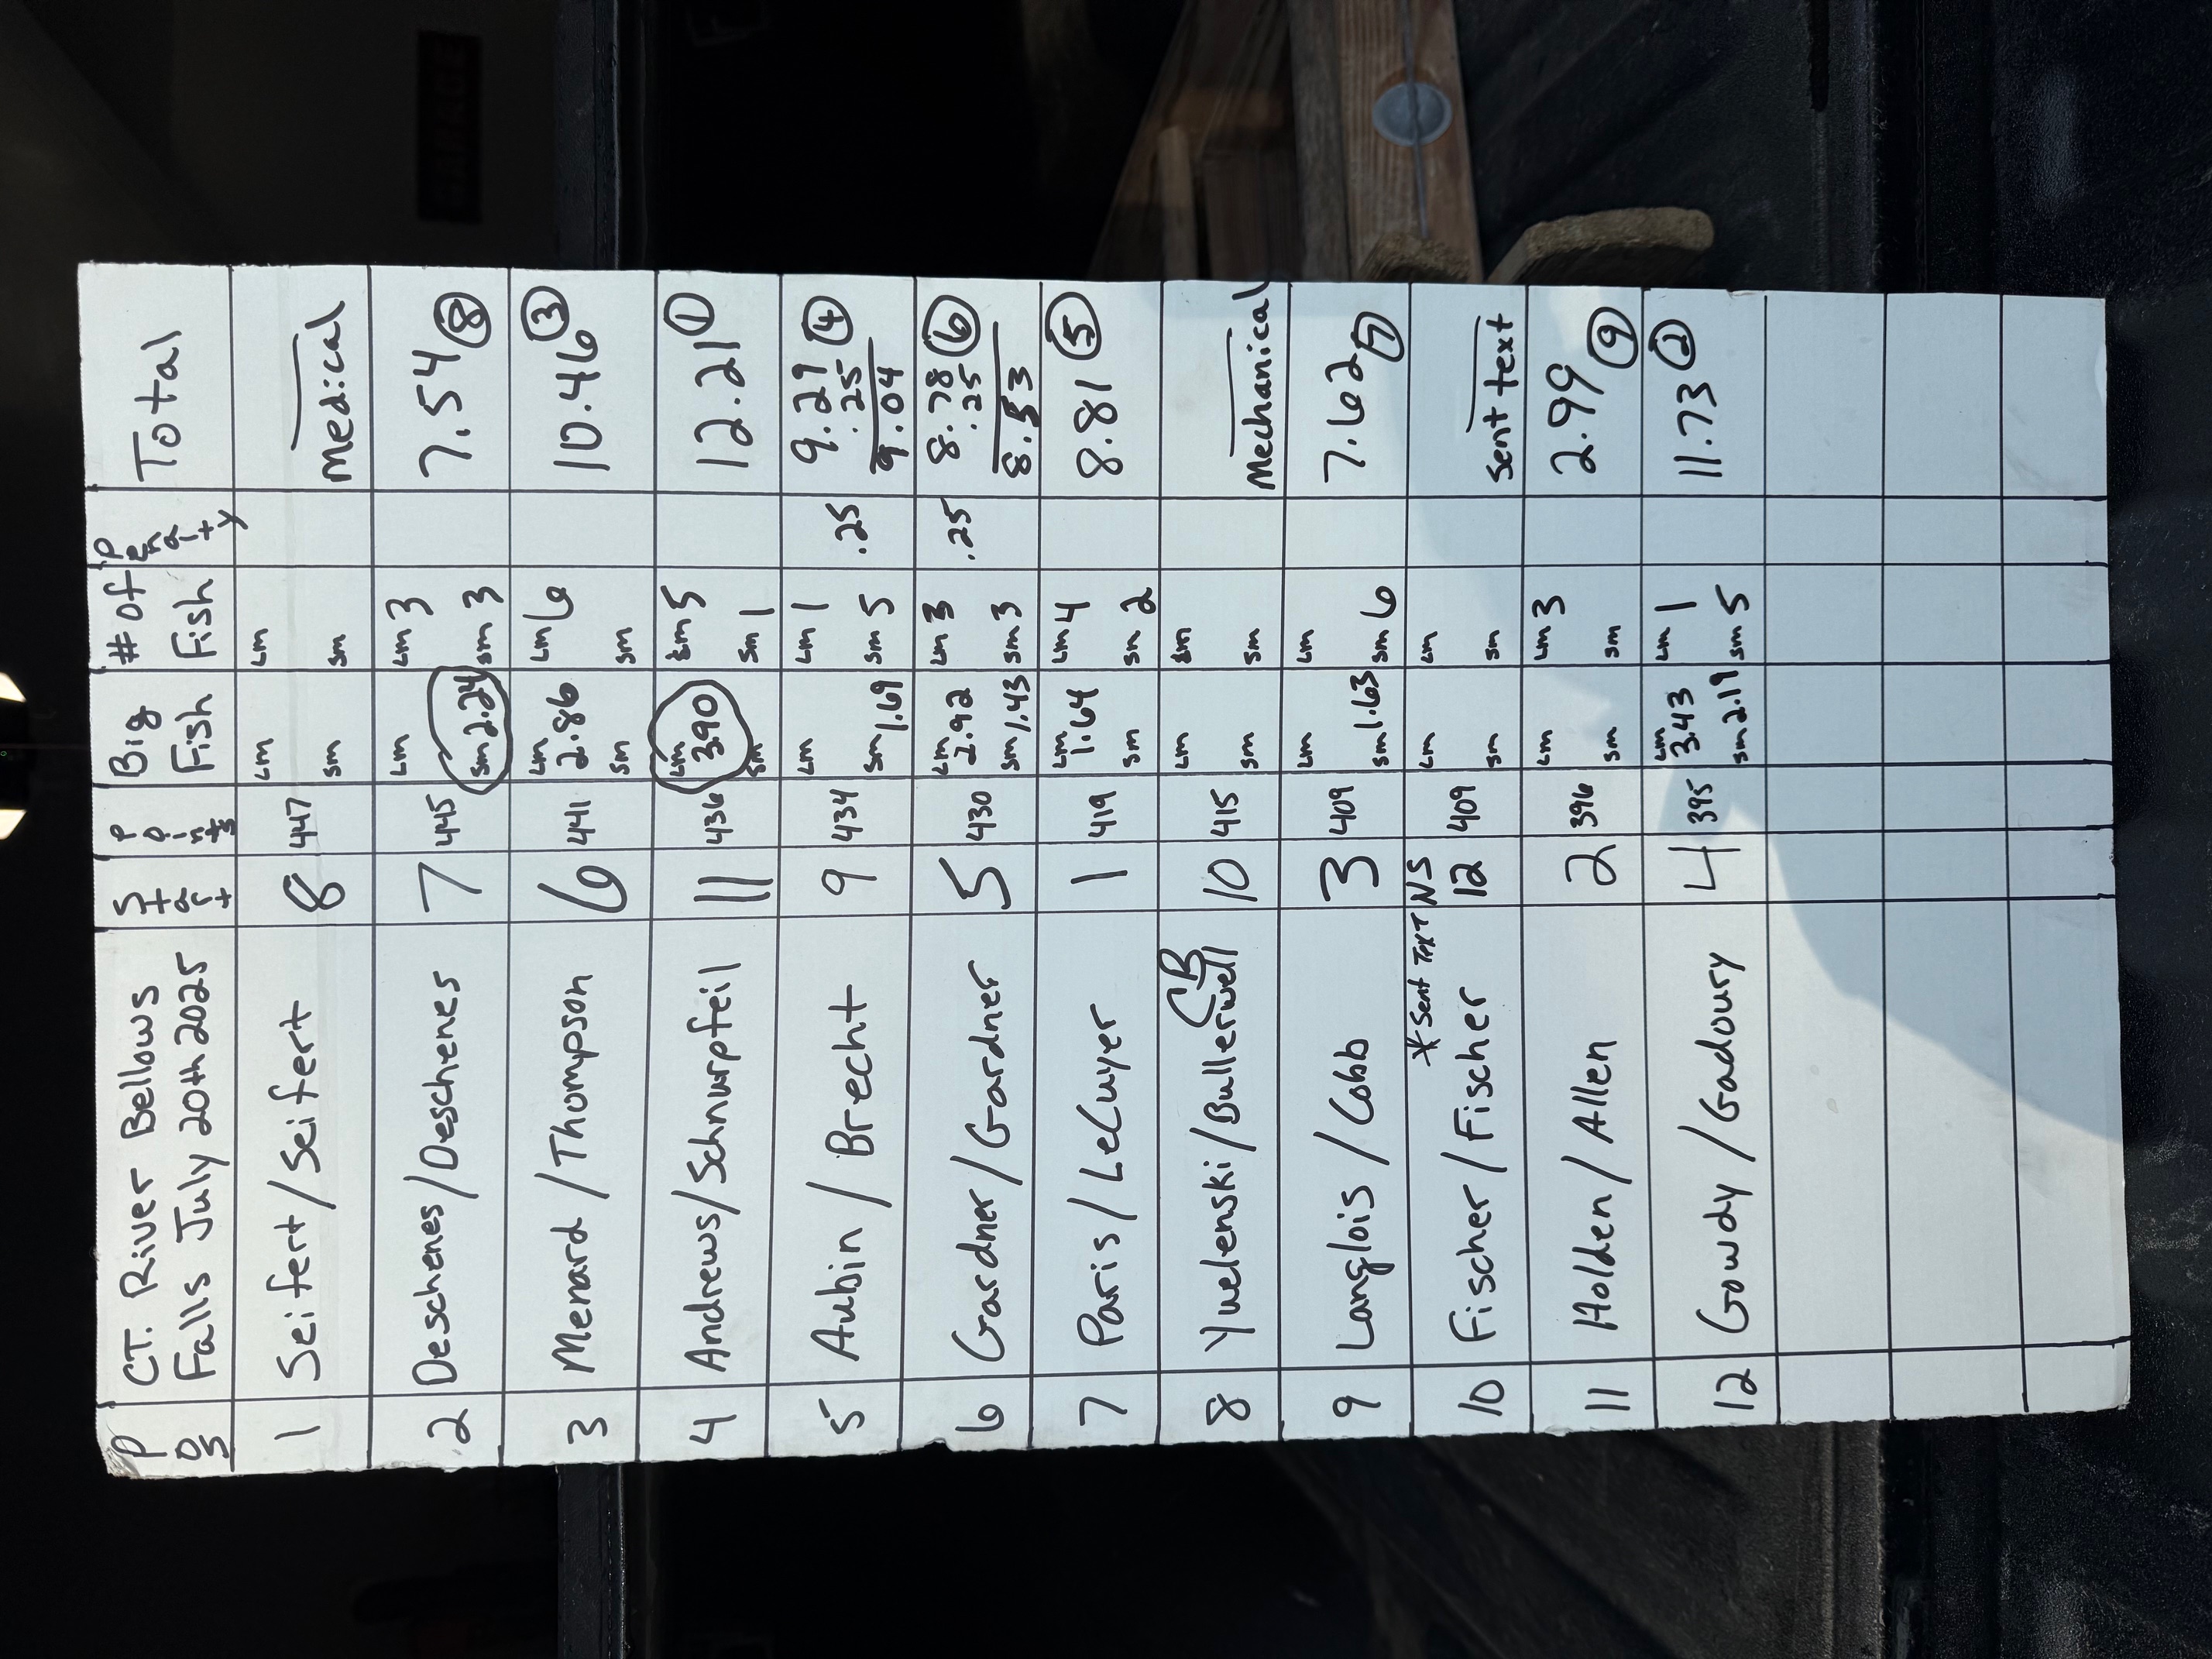 Pos CT. River Bellows Falls July 20th 2025 Start Points Big Fish # of Fish Penalty Total
1 Seifert/Seifert 8 447 Lm Lm
Sm Sm Medical
2 Deschenes/Deschenes 7 445 Lm Lm 3 7.54
Sm 2.24 Sm 3 8
3 Menard/Thompson 6 441 Lm 2.86 Lm 6 10.46 3
Sm Sm
4 Andrews/Schnurpfeil 11 436 Lm 3.90 Lm 5 12.21 1
Sm Sm 1
5 Aubin/Brecht 9 434 Lm Lm 1 .25 9.29 4
.25
Sm 1.69 Sm 5 9.04
6 Gardner/Gardner 5 430 Lm 2.92 Lm 3 .25 8.78 6
.25
Sm 1.43 Sm 3 8.53
7 Paris/LeCuyer 1 419 Lm 1.64 Lm 4 8.81 5
Sm Sm 2
CB
8 Yuelenski/Bullerwell 10 415 Lm Lm
Sm Sm Mechanical
9 Langlois/Cobb 3 409 Lm Lm 7.62
Sm 1.63 Sm 6 7
* Sent TexT NS
10 Fischer/Fischer 12 409 Lm Lm
Sm Sm Sent text
11 Holden/Allen 2 396 Lm Lm 3 2.99
Sm Sm 9
12 Gowdy/Gadoury 4 395 Lm 3.43 Lm 1 11.73 2
Sm 2.19 Sm 5